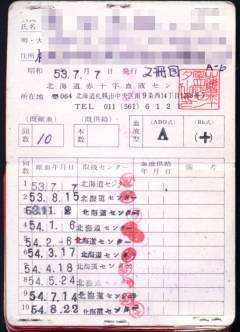 氏名
明・大
住所
昭和 53.7.7 発行 2冊目 A-b
北海道赤十字血液センター
所在地 〒064 北海道札幌市中央区南9条西14丁目
TEL 011 (561) 6121
(既献血) (既供給) 血液型 (ABO式) (Rh式)
回数 10 回数 A (+)
回数 献血年月日 取扱センター
1 53.7.7 北海道センター
2 53.8.15 北海道センター
3 53.11.2 北海道センター
4 54.1.6 北海道センター
5 54.2.-6 北海道センター
6 54.3.17 北海道センター
7 54.4.18 北海道センター
8 54.5.24 北海道センター
9 54.7.14 北海道センター
10 54.8.22 北海道センター